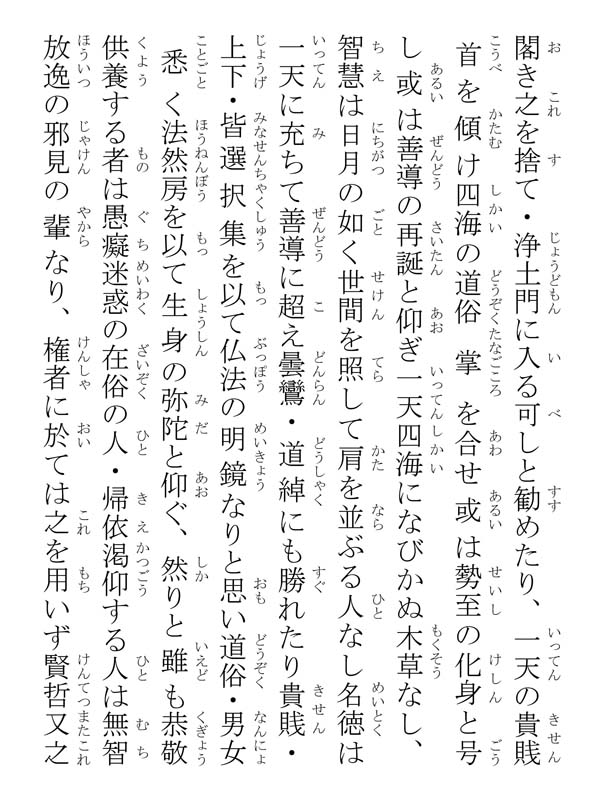 閣き之を捨て・浄土門に入る可しと勧めたり、一天の貴賎
首を傾け四海の道俗掌を合せ或は勢至の化身と号
し或は善導の再誕と仰ぎ一天四海になびかぬ木草なし、
智慧は日月の如く世間を照して肩を並ぶる人なし名徳は
一天に充ちて善導に超え曇鸞・道綽にも勝れたり貴賎・
上下・皆選択集を以て仏法の明鏡なりと思い道俗・男女
悉く法然房を以て生身の弥陀と仰ぐ、然りと雖も恭敬
供養する者は愚癡迷惑の在俗の人・帰依渇仰する人は無智
放逸の邪見の輩なり、権者に於ては之を用いず賢哲又之